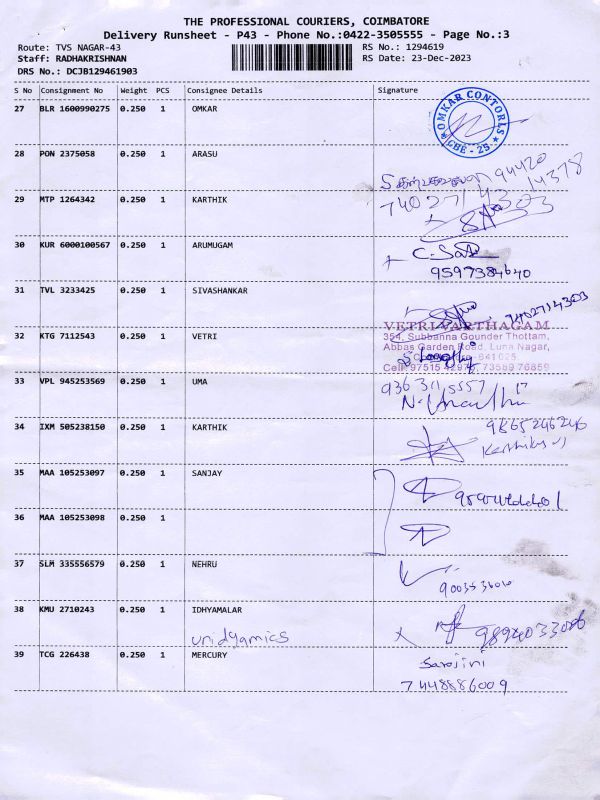 THE PROFESSIONAL COURIERS, COIMBATORE
Delivery Runsheet - P43 - Phone No.:0422-3505555 - Page No.:3
Route: TVS NAGAR-43
RS No.: 1294619
Staff: RADHAKRISHNAN
RS Date: 23-Dec-2023
DRS No.: DCJB129461903
S No Consignment No Weight PCS Consignee Details Signature
27 BLR 1600990275 0.250 1 OMKAR
OMKAR CONTORLS
CBE - 25
28 PON 2375058 0.250 1 ARASU
94420
14378
29 MTP 1264342 0.250 1 KARTHIK
7402714303
30 KUR 6000100567 0.250 1 ARUMUGAM
9597384640
31 TVL 3233425 0.250 1 SIVASHANKAR
7402714303
32 KTG 7112543 0.250 1 VETRI
VETRI VARTHAGAM
354, Subbanna Gounder Thottam,
Abbas Garden Road, Luna Nagar,
641025
Cell: 97515 42976, 73589 76859
33 VPL 945253569 0.250 1 UMA
34 IXM 505238150 0.250 1 KARTHIK
9865246246
35 MAA 105253097 0.250 1 SANJAY
36 MAA 105253098 0.250 1
37 SLM 335556579 0.250 1 NEHRU
38 KMU 2710243 0.250 1 IDHYAMALAR
unidyamics
39 TCG 226438 0.250 1 MERCURY
Sarojini
7448886009